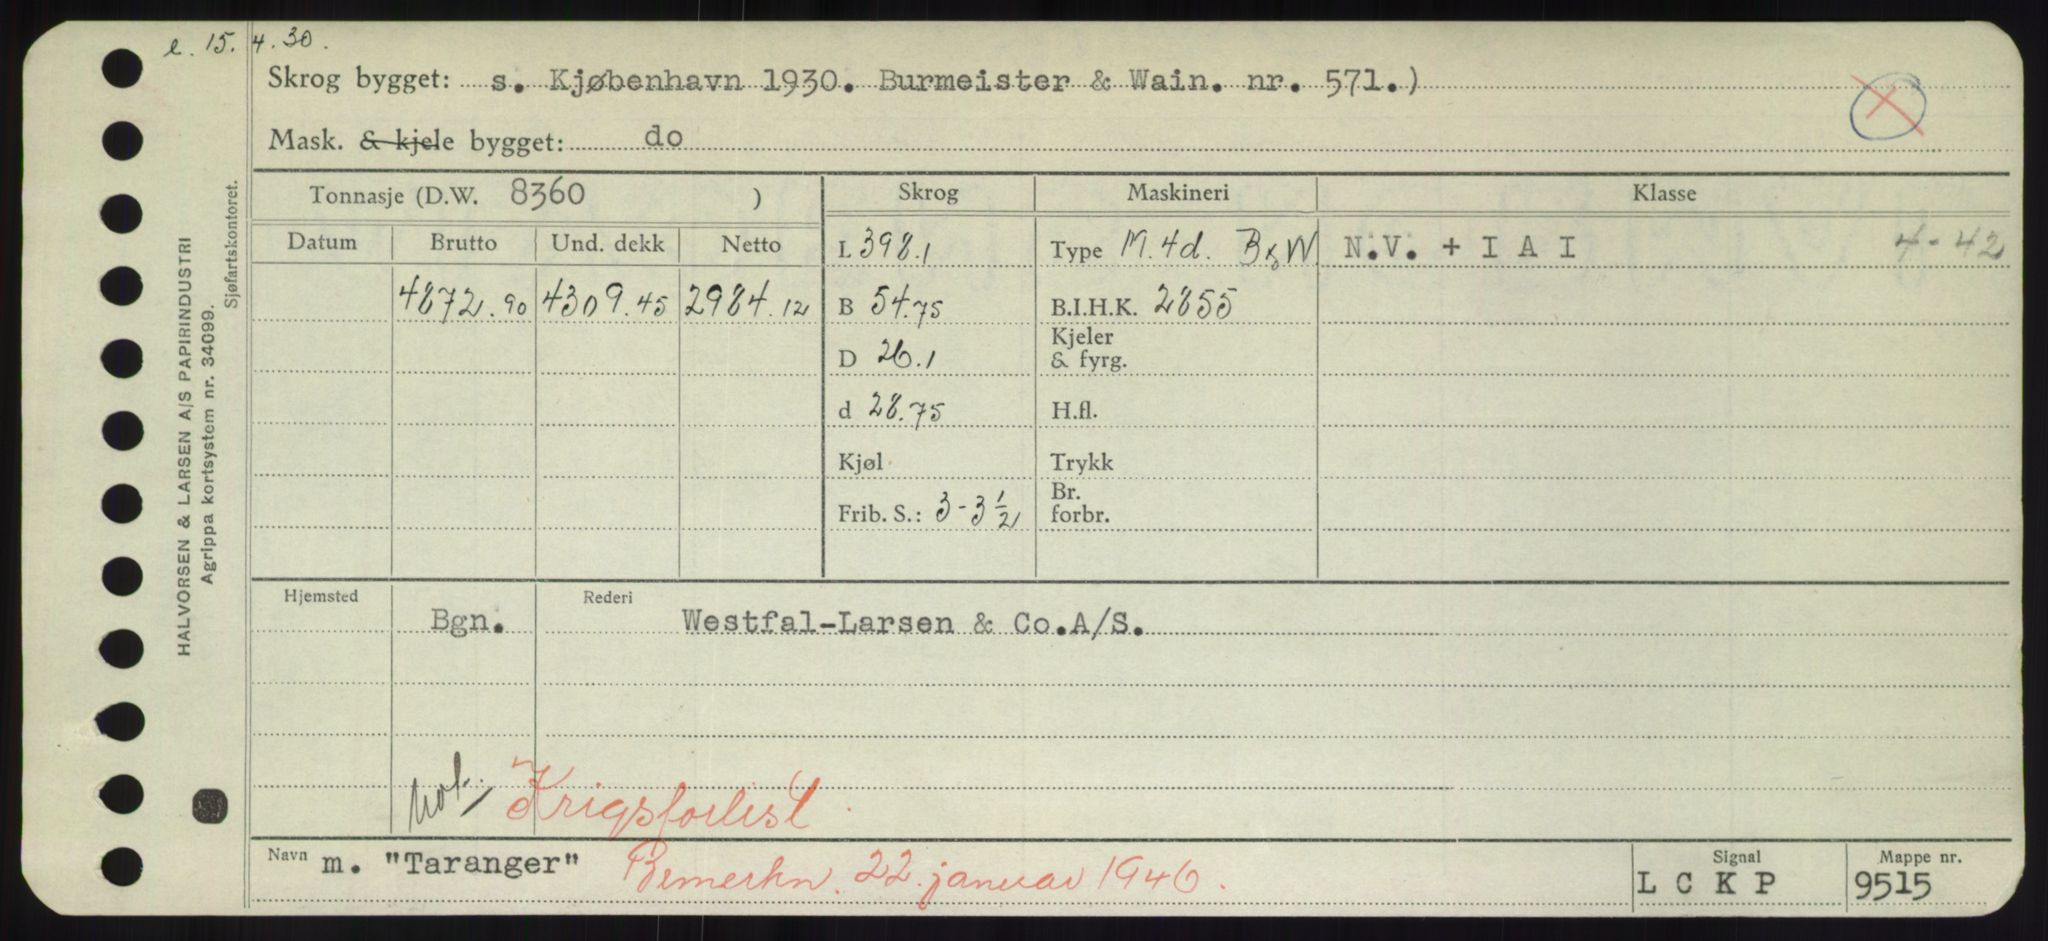 e. 15. 4. 30.
Skrog bygget: s. Kjøbenhavn 1930. Burmeister & Wain. nr. 571.)
Mask. & kjele bygget: do
Tonnasje (D.W. 8360 )
Skrog Maskineri Klasse
Datum Brutto Und. dekk Netto
L 398.1 Type M. 4d. B&W N.V. + I A I 4-42
4872.90 4309.45 2984.12 B 54.75 B.I.H.K. 2855
D 26.1 Kjeler
& fyrg.
d 28.75 H.fl.
Kjøl Trykk
Frib. S.: 3-3 1/2 Br.
forbr.
Hjemsted Rederi
Bgn. Westfal-Larsen & Co.A/S.
not. Krigsforlist.
Navn m. "Taranger" Bemerkn. 22. januar 1946. Signal L C K P Mappe nr. 9515
HALVORSEN & LARSEN A/S PAPIRINDUSTRI
Agrippa kortsystem nr. 34099.
Sjøfartskontoret.